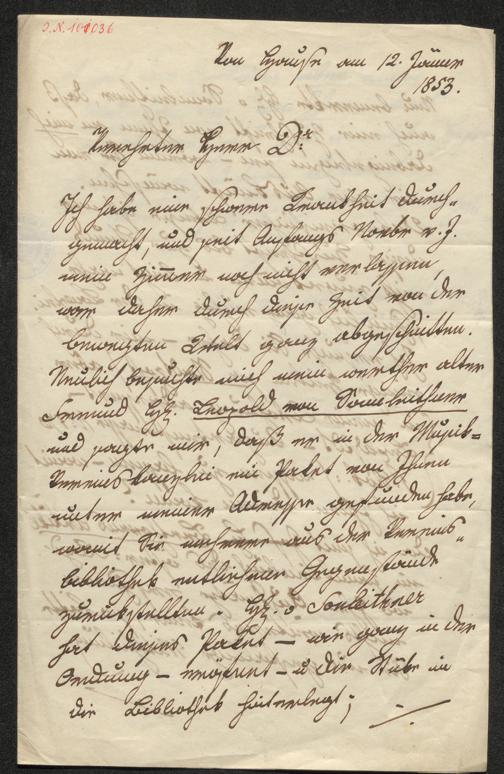 J.N. 101036
Von Hause am 12. Jänner
1853.
Verehrter Herr Dr
Ich habe eine schwere Krankheit durch-
gemacht, und seit Anfangs Novbr v. J.
mein Zimmer noch nicht verlassen,
war daher durch diese Zeit von der
bewegten Welt ganz abgeschnitten.
Neulich besuchte mich mein werther alter
Freund H. Leopold von Sonnleithner
und sagte mir, daß er in der Musik-
Vereins Kanzlei ein Paket von Ihnen
unter meiner Adresse gefunden habe,
womit Sie mehrere aus der Vereins-
bibliothek entliehene Gegenstände
zurückstellten. H. v Sonleithner
hat dieses Paket – wie ganz in der
Ordnung – eröffnet – u die Stüke in
die Bibliothek hinterlegt;